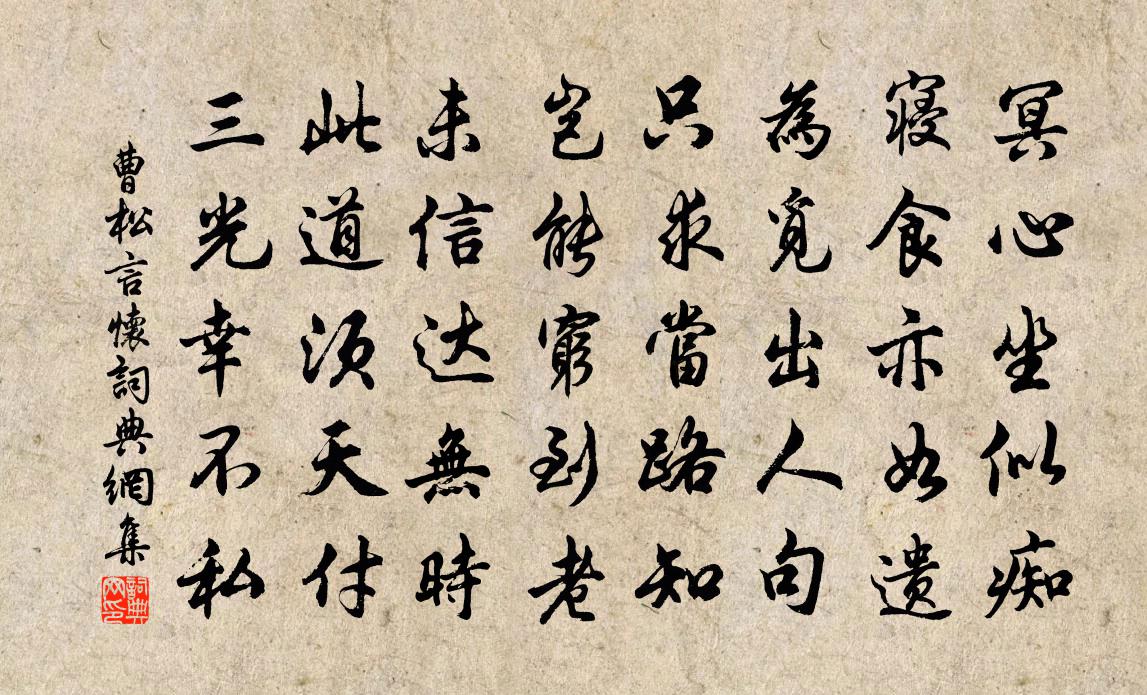 冥心坐似痴
寝食亦如遗
為覓出人句
只求當路知
岂能窮到老
未信达無時
此道须天付
三光幸不私
曹松言懷詞典網集
詞典网印